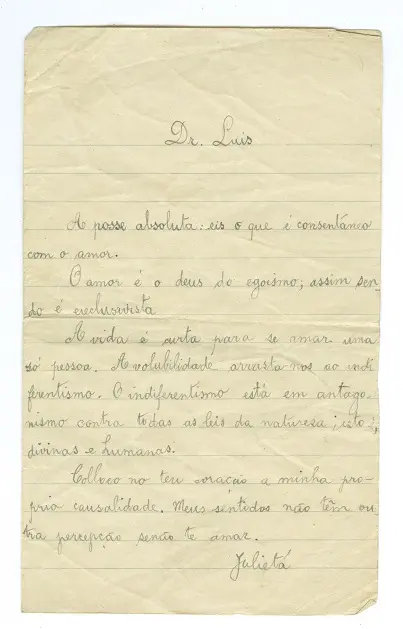 Dr. Luis
A posse absoluta: eis o que é consentaneo
com o amor.
O amor é o deus do egoismo; assim sen-
do é exclusivista
A vida é curta para se amar uma
só pessoa. A volubilidade arrasta-nos ao indi-
ferentismo. O indiferentismo está em antago-
nismo contra todas as leis da natureza; isto é,
divinas e humanas.
Colloco no teu coração a minha pro-
pria causalidade. Meus sentidos não têm ou-
tra percepção senão te amar.
Julieta